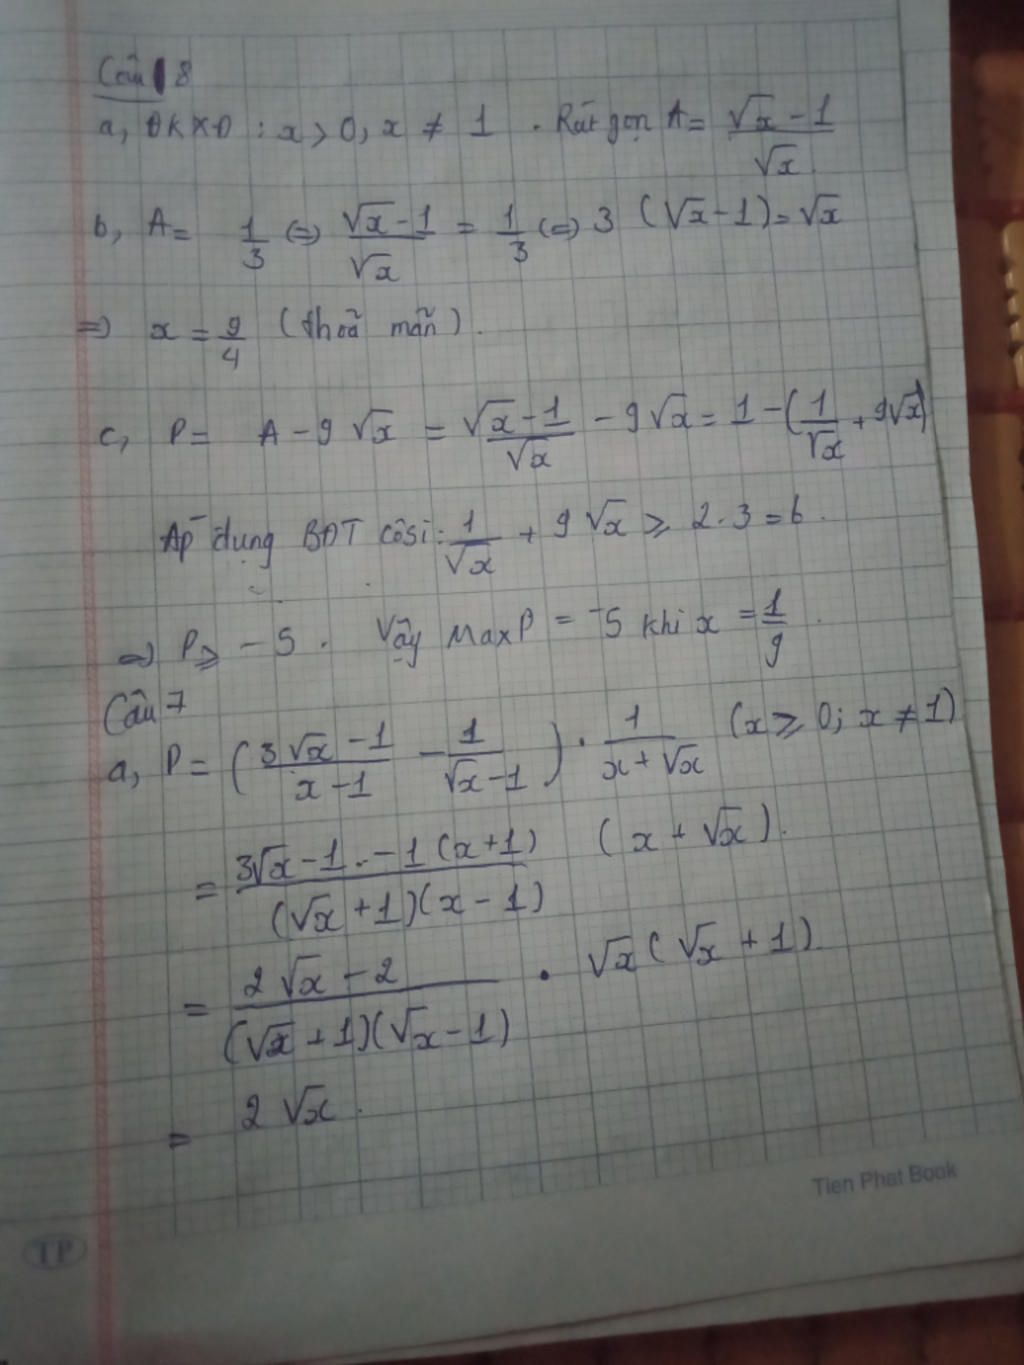 Câu 8
a, ĐKXĐ : x > 0, x ≠ 1 . Rút gọn A = (√x - 1)/√x
b, A = 1/3 (=) (√x - 1)/√x = 1/3 (=) 3 (√x - 1) = √x
=) x = 9/4 (thoả mãn).
c, P = A - 9 √x = (√x - 1)/√x - 9 √x = 1 - (1/√x + 9√x)
Áp dụng BĐT côsi: 1/√x + 9 √x ⩾ 2.3 = 6.
=) P ⩾ -5 . Vậy Max P = -5 khi x = 1/9 .
Câu 7
a, P = ((3√x - 1)/(x - 1) - 1/(√x - 1)) . 1/(x + √x) (x ⩾ 0; x ≠ 1)
= (3√x - 1 . - 1 (x + 1))/((√x + 1)(x - 1)) (x + √x).
= (2 √x - 2)/((√x + 1)(√x - 1)) . √x (√x + 1)
= 2 √x .
Tien Phat Book
TP